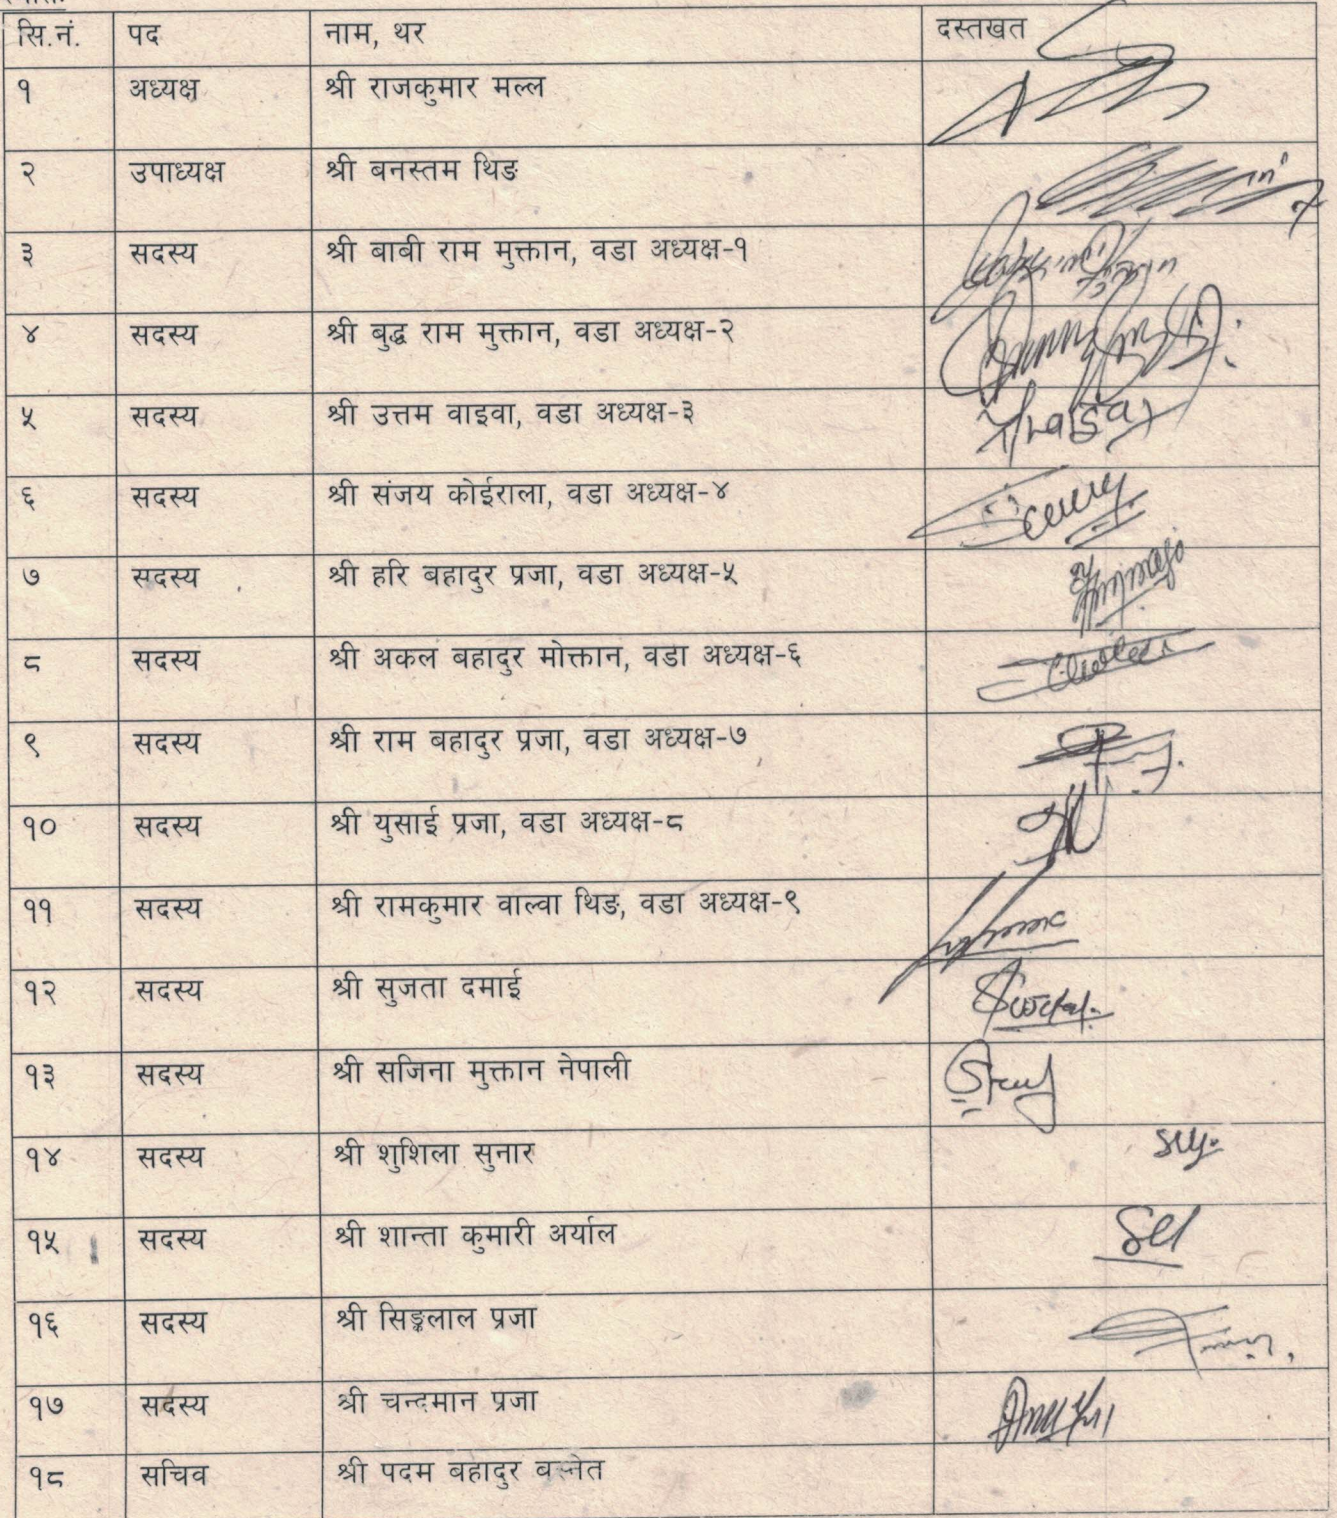 सि.नं. पद नाम, थर दस्तखत
१ अध्यक्ष श्री राजकुमार मल्ल
२ उपाध्यक्ष श्री बनस्तम थिङ
३ सदस्य श्री बाबी राम मुक्तान, वडा अध्यक्ष-१
४ सदस्य श्री बुद्ध राम मुक्तान, वडा अध्यक्ष-२
५ सदस्य श्री उत्तम वाइवा, वडा अध्यक्ष-३
६ सदस्य श्री संजय कोईराला, वडा अध्यक्ष-४
७ सदस्य श्री हरि बहादुर प्रजा, वडा अध्यक्ष-५
८ सदस्य श्री अकल बहादुर मोक्तान, वडा अध्यक्ष-६
९ सदस्य श्री राम बहादुर प्रजा, वडा अध्यक्ष-७
१० सदस्य श्री युसाई प्रजा, वडा अध्यक्ष-८
११ सदस्य श्री रामकुमार वाल्वा थिङ, वडा अध्यक्ष-९
१२ सदस्य श्री सुजता दमाई
१३ सदस्य श्री सजिना मुक्तान नेपाली
१४ सदस्य श्री शुशिला सुनार
१५ सदस्य श्री शान्ता कुमारी अर्याल
१६ सदस्य श्री सिङ्कलाल प्रजा
१७ सदस्य श्री चन्दमान प्रजा
१८ सचिव श्री पदम बहादुर बस्नेत